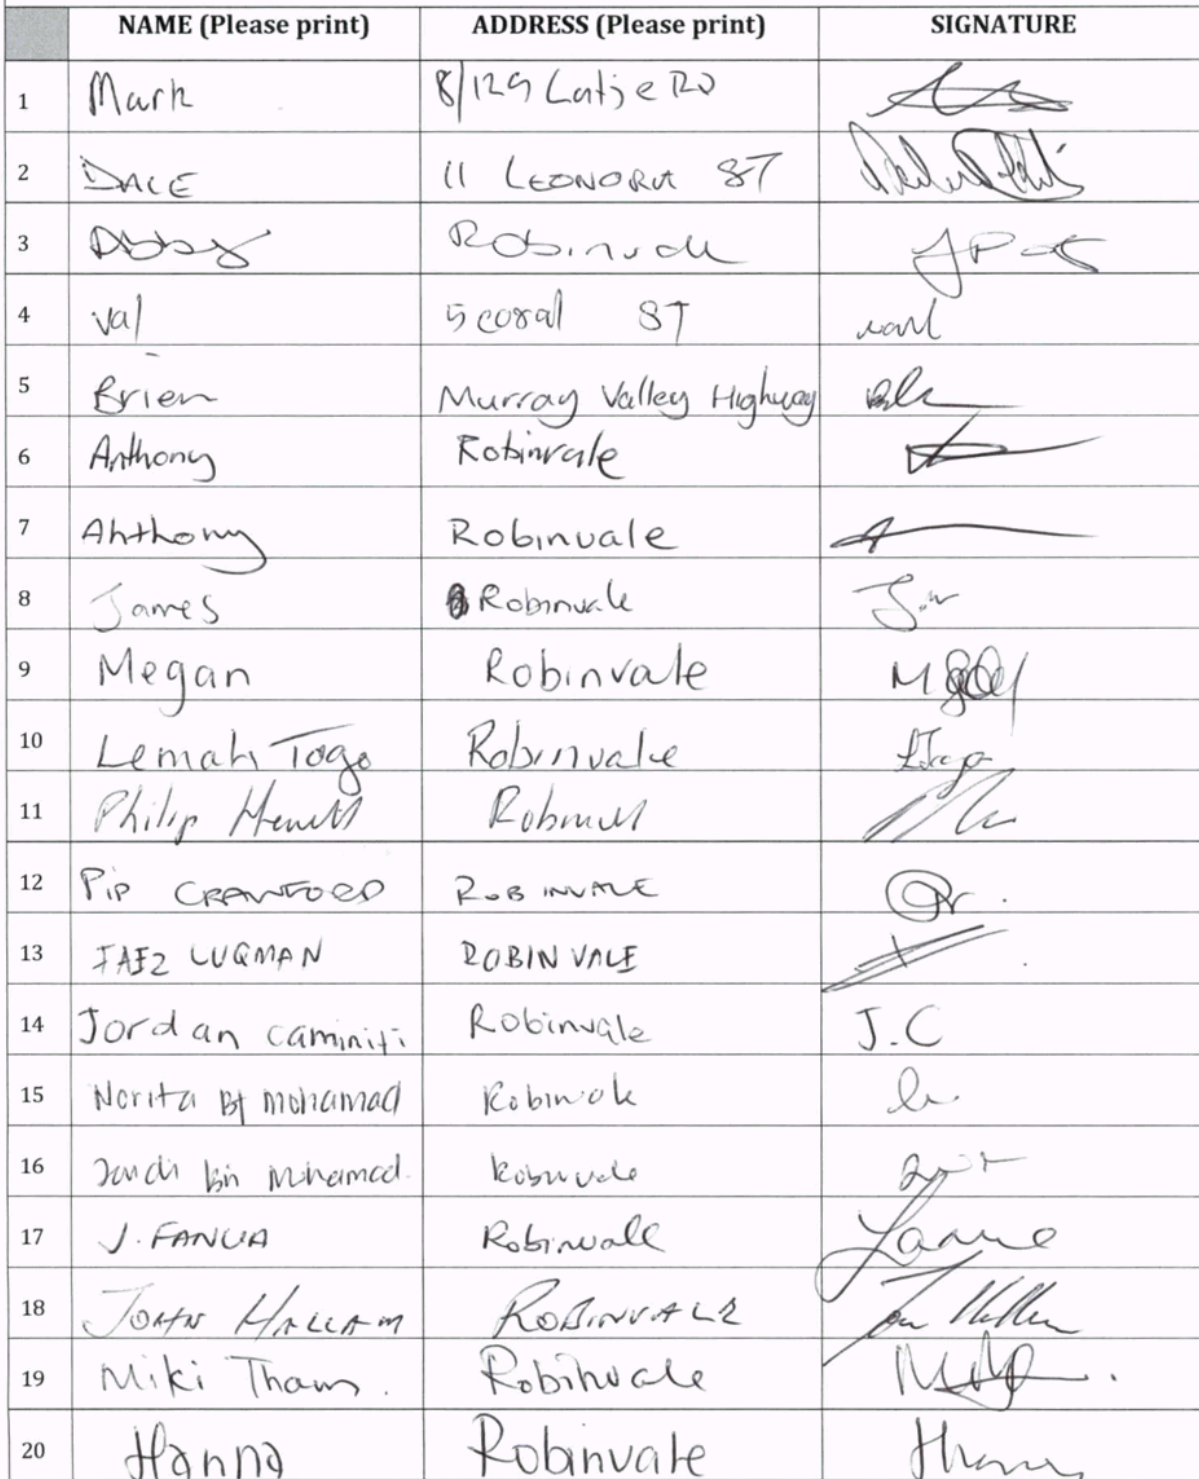 NAME (Please print) ADDRESS (Please print) SIGNATURE
1 Mark 8/129 Latje RD
2 DALE 11 LEONORA ST
3 Abby Robinvale
4 Val 5 coral ST
5 Brien Murray Valley Highway
6 Anthony Robinvale
7 Anthony Robinvale
8 James Robinvale
9 Megan Robinvale
10 Lemah Togo Robinvale
11 Philip Robinvale
12 Pip CRAWFORD ROBINVALE
13 FAEZ LUQMAN ROBINVALE
14 Jordan Caminiti Robinvale J.C
15 Norita Bt Mohamad Robinvale
16 bin Mohamad. Robinvale
17 J. FANUA Robinvale
18 JOHN HALLAM ROBINVALE
19 Miki Robinvale
20 Hanna Robinvale